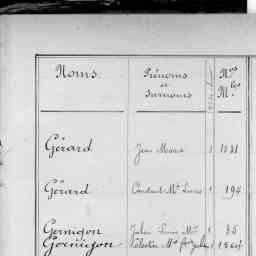 Noms. Prénoms et Surnoms Nos Mles
Gérard Jean Marie 1 1031
Gérard Constant Mie Louis 1 194
Gernigon Julien Louis Mie 1 35
Gernigon Célestin Mie 1